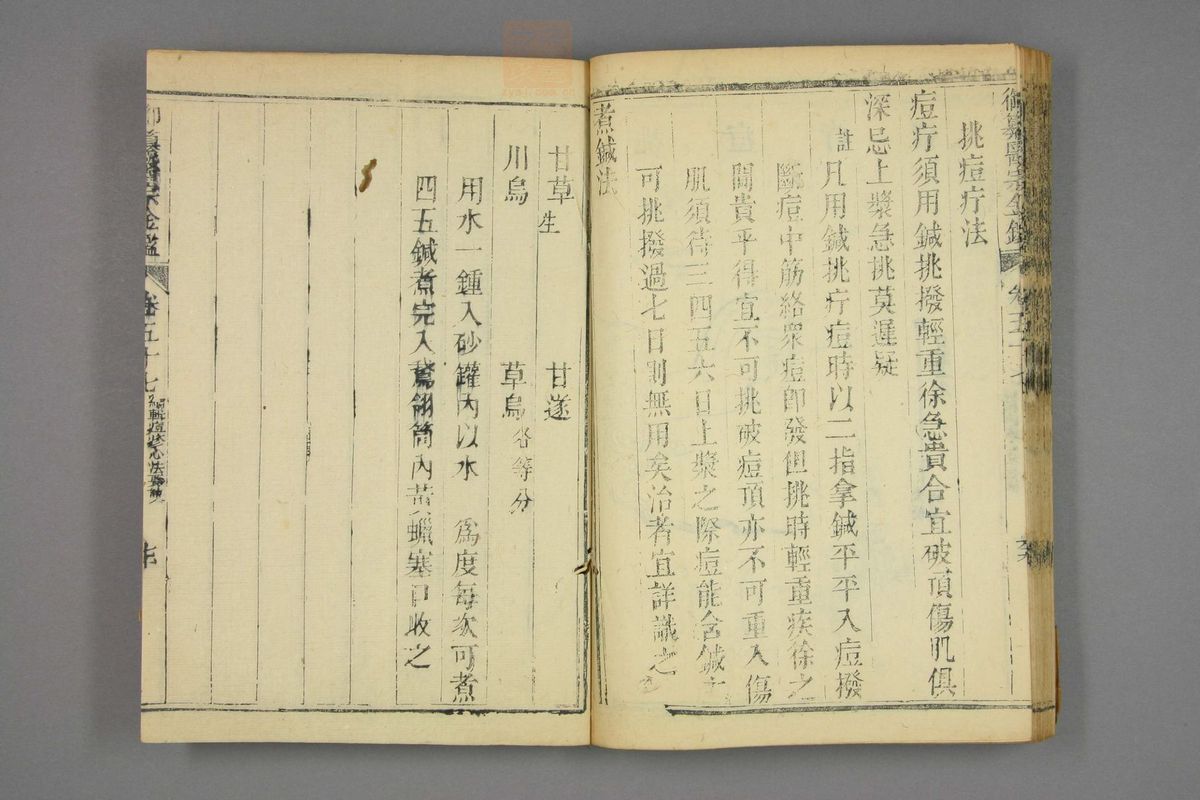 御纂醫宗金鑑
卷五十七
挑痘疔法
痘疔須用鍼挑撥輕重徐急貴合宜破頂傷肌俱
深忌上漿急挑莫遲疑
註凡用鍼挑疔痘時以二指拿鍼平平入痘撥
斷痘中筋絡衆痘即發但挑時輕重疾徐之
間貴乎得宜不可挑破痘頂亦不可重入傷
肌須待三四五六日上漿之際痘能含鍼方
可挑撥過七日則無用矣治者宜詳識之
煮鍼法
甘草生 甘遂
川烏 草烏各等分
用水一鍾入砂鑵內以水 為度每次可煮
四五鍼煮完入鵞翎筒內黃蠟塞口收之
御纂醫宗金鑑
卷五十七
編輯痘疹心法要訣